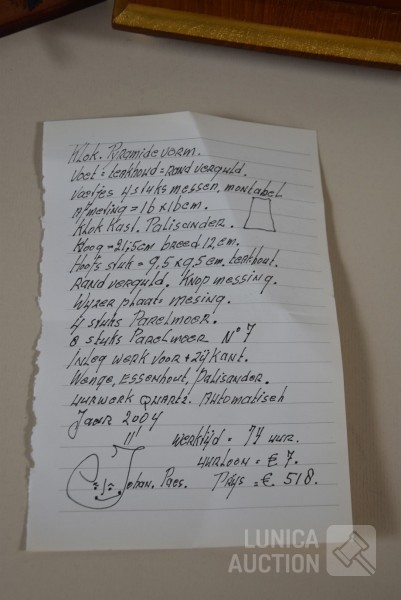 Klok. Piramide vorm.
Voet = kerkhoud = Rand verguld.
Voetjes 4 stuks messen, montabel
afmeting = 16 x 16 cm.
Klok Kast. Palisander.
Hoog = 21,5 cm breed 12, cm.
Hoofs stuk = 9,5 x 9,5 cm. kerkhout.
Rand verguld. Knop messing.
Wijzer plaat = mesing.
4 stuks Parelmoer.
8 stuks Parelmoer No 7
Inleg werk voor + zij kant.
Wenge, Essenhout, Palisander.
uurwerk Quartz. Automatisch
Jaar 2004
Werktijd = 74 uur.
uurloon = € 7.
Johan. Paes. Prijs = € 518.
LUNICA
AUCTION